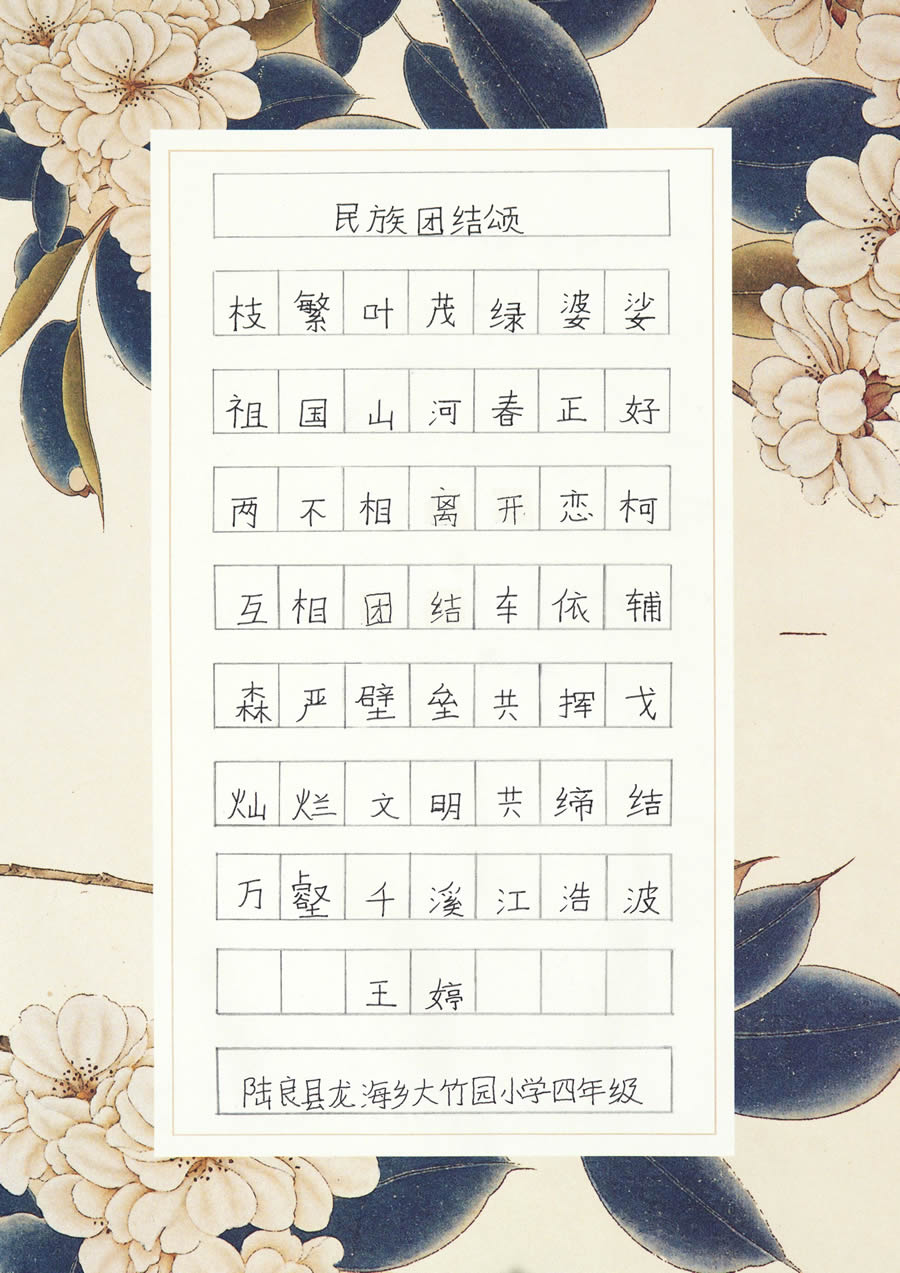 民族团结颂
枝繁叶茂绿婆娑
祖国山河春正好
两不相离开恋柯
互相团结车依辅
森严壁垒共挥戈
灿烂文明共缔结
万壑千溪江浩波
王婷
陆良县龙海乡大竹园小学四年级